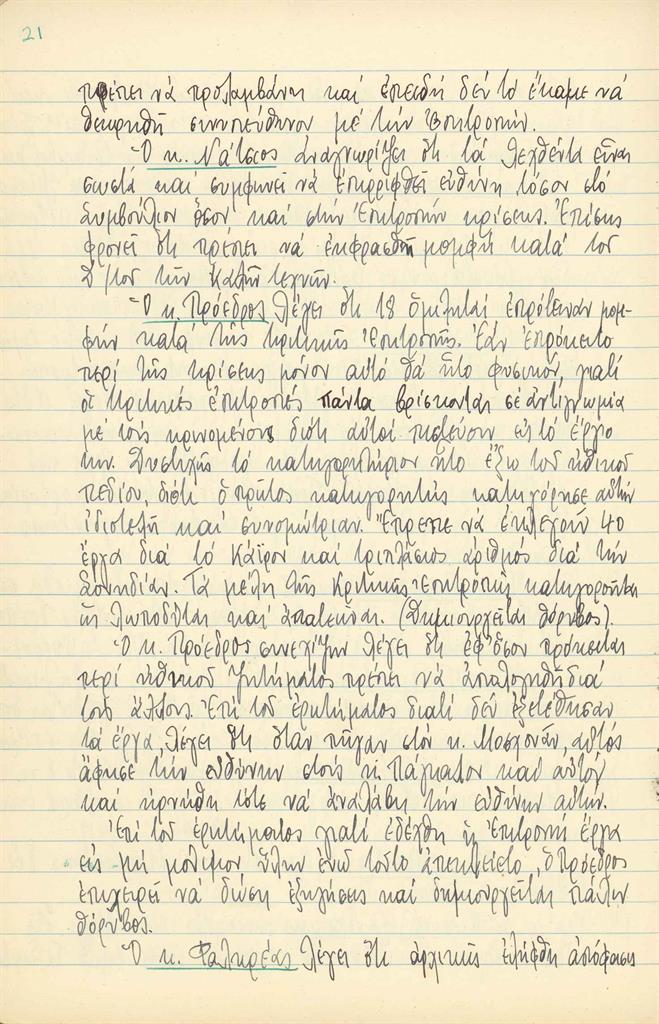 21
πρέπει νά προλαμβάνη καί ἐπειδή δέν τό ἔκαμε νά
θεωρηθῆ συνυπεύθυνον μέ τήν Ἐπιτροπήν.
Ὁ κ. Νάτσιος ἀναγνωρίζει ὅτι τά λεχθέντα εἶναι
σωστά καί συμφωνεῖ νά ἐπιρριφθεῖ εὐθύνη τόσον στό
Συμβούλιον ὅσον καί στήν Ἐπιτροπήν κρίσεως. Ἐπίσης
φρονεῖ ὅτι πρέπει νά ἐκφρασθῆ μομφή κατά τοῦ
τῶν καλῶν τεχνῶν.
Ὁ κ. Πρόεδρος λέγει ὅτι 18 ὁμιληταί ἐπρότειναν μομ-
φήν κατά τῆς κριτικῆς Ἐπιτροπῆς. Ἐάν ἐπρόκειτο
περί τῆς κρίσεως μόνον αὐτό θά ἦτο φυσικόν, γιατί
οἱ κριτικές ἐπιτροπές πάντα βρίσκονται σέ ἀντιγνωμία
μέ τούς κρινομένους διότι αὐτοί πιστεύουν εἰς τό ἔργο
των. Δυστυχῶς τό κατηγορητήριον ἦτο ἔξω τοῦ ἠθικοῦ
πεδίου, διότι ὁ πρῶτος κατηγορητής κατηγόρησε αὐτήν
ἰδιοτελῆ καί συνομώτριαν. Ἔπρεπε νά ἐκλεγοῦν 40
ἔργα διά τό Κάϊρον καί τριπλάσιος ἀριθμός διά τήν
Σουηδίαν. Τά μέλη τῆς Κριτικῆς Ἐπιτροπῆς κατηγοροῦνται
ὡς λωποδύται καί ἀπατεῶναι. (Δημιουργεῖται θόρυβος).
Ὁ κ. Πρόεδρος συνεχίζων λέγει ὅτι ἐφ' ὅσον πρόκειται
περί ἠθικοῦ ζητήματος πρέπει νά ἀπολογηθῆ διά
τούς ἄλλους. Ἐπί τοῦ ἐρωτήματος διατί δέν ἐξελέθησαν
τά ἔργα, λέγει ὅτι ὅταν πῆγαν στόν κ. Μοσχονᾶν, αὐτός
ἄφησε τήν εὐθύνην στούς κ. καί αὐτόν
καί ἠρνήθη τότε νά ἀναλάβη τήν εὐθύνην αὐτήν.
Ἐπί τοῦ ἐρωτήματος γιατί ἐδέχθη ἡ Ἐπιτροπή ἔργα
εἰς μή μόνιμον ὕλην ἐνῶ τοῦτο ἀπεκλείετο, ὁ Πρόεδρος
ἐπιχειρεῖ νά δώση ἐξηγήσεις καί δημιουργεῖται πάλιν
θόρυβος.
Ὁ κ. Φαληρέας λέγει ὅτι ἀρχικῶς ἐλήφθη ἀπόφασις